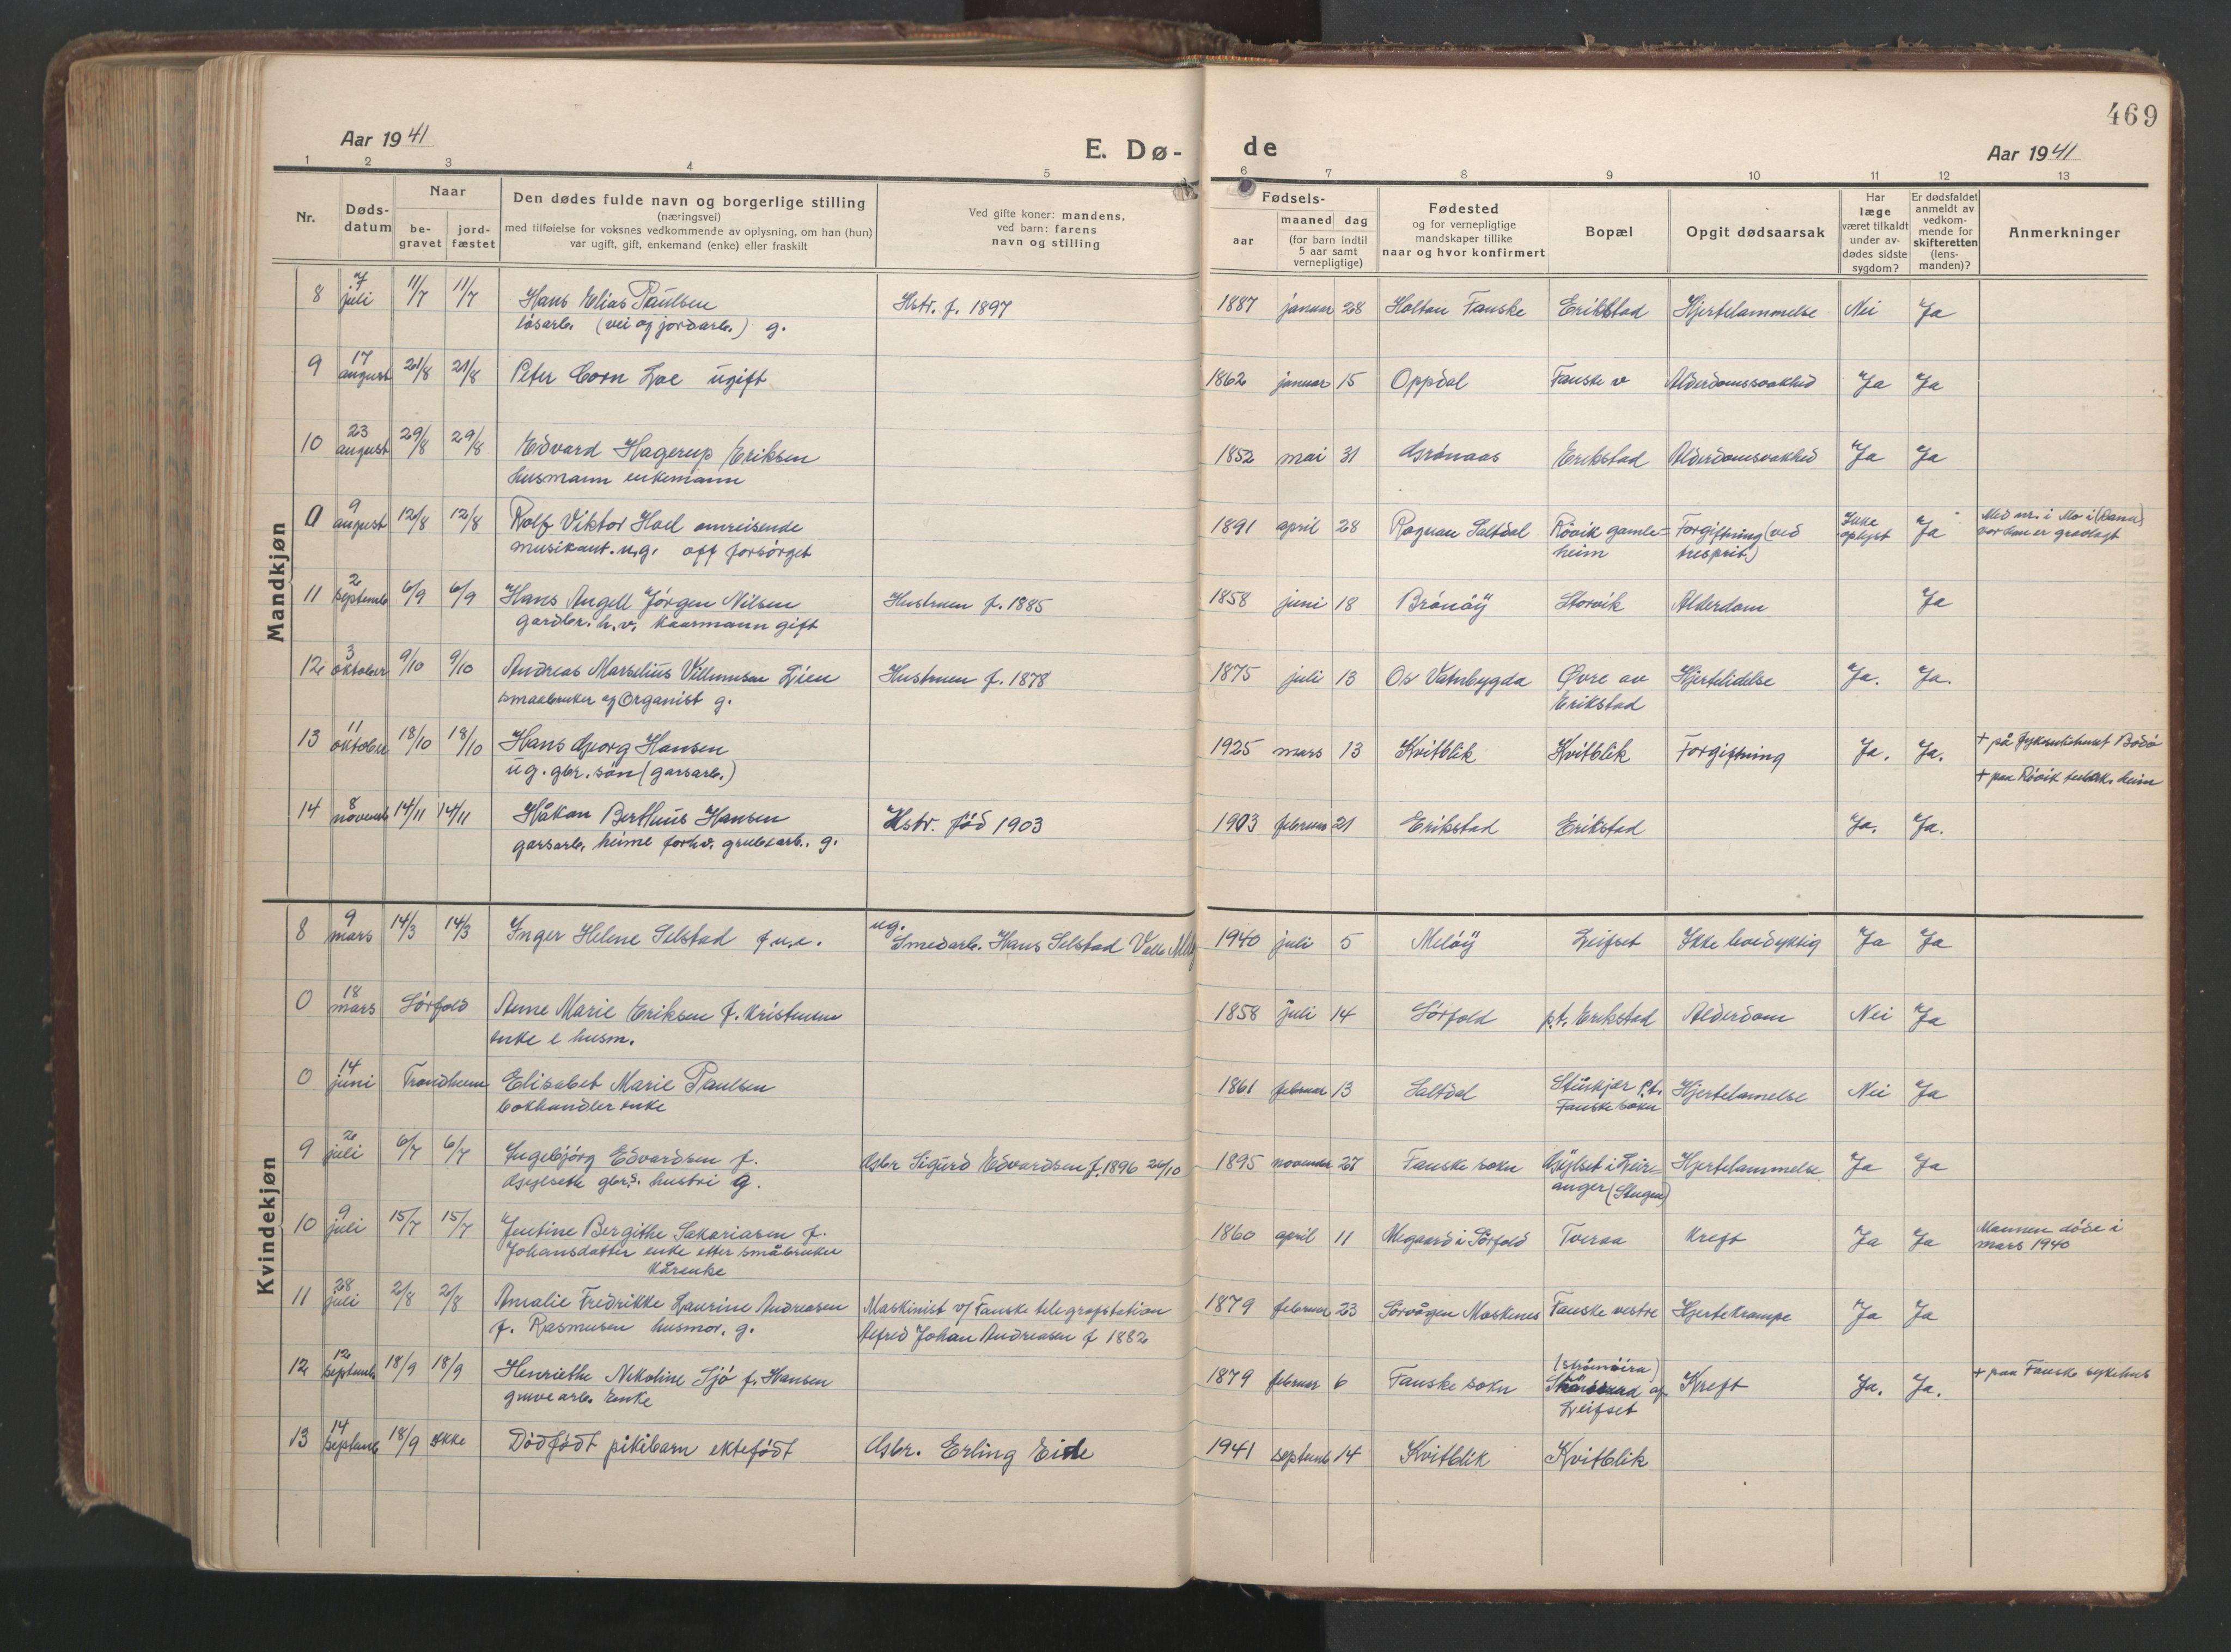 469
Aar 1941
E. Dø-
de
Aar 1941
1 2 3 4 5 6 7 8 9 10 11 12 13
Nr.
Døds-
datum
Naar
be-
gravet
jord-
fæstet
Den dødes fulde navn og borgerlige stilling
(næringsvei)
med tilføielse for voksnes vedkommende av oplysning, om han (hun)
var ugift, gift, enkemand (enke) eller fraskilt
Ved gifte koner: mandens,
ved barn: farens
navn og stilling
Fødsels-
aar
maaned dag
(for barn indtil
5 aar samt
vernepligtige)
Fødested
og for vernepligtige
mandskaper tillike
naar og hvor konfirmert
Bopæl
Opgit dødsaarsak
Har
læge
været tilkaldt
under av-
dødes sidste
sygdom?
Er dødsfaldet
anmeldt av
vedkom-
mende for
skifteretten
(lens-
manden)?
Anmerkninger
Mandkjøn
8 7 juli 11/7 11/7 Hans Elias Paulsen Hstr. f. 1897 1887 januar 28 Holtan Fauske Erikstad Hjertelammelse Nei Ja
løsarb. (vei og jordarb.) g.
9 17 august 21/8 21/8 Peter Corn Loe ugift 1862 januar 15 Oppdal Fauske v Alderdomssvakhed Ja Ja
10 23 august 29/8 29/8 Edvard Hagerup Eriksen 1852 mai 31 Grønaas Erikstad Alderdomsvakhed Ja Ja
husmann enkemann
0 9 august 12/8 12/8 Rolf Viktor Hoel omreisende 1891 april 28 Rognan Saltdal Røvik gamle- Forgiftning (ved Ikke Ja Med nr. i Mo i (Rana)
musikant. ug. off forsørget heim tresprit) oplyst vor han er gravlagt
11 2 septemb 6/9 6/9 Hans Angell Jørgen Nilsen Hustruen f. 1885 1858 juni 18 Brønøy Storvik Alderdom Ja
gardbr. h.v. kaarmann gift
12 3 oktober 9/10 9/10 Andreas Marselius Villumsen Lien Hustruen f. 1878 1875 juli 13 Os Vatnbygda Øvre av Hjertelidelse Ja. Ja.
smaabruker og Organist g. Erikstad
13 11 oktober 18/10 18/10 Hans Georg Hansen 1925 mars 13 Kvitblik Kvitblik Forgiftning Ja. Ja. + på sykehuset Bodø
ug. gbr. søn (garsarb.) + paa Røvik tuberk. heim
14 8 novemb 14/11 14/11 Håkon Berthius Hansen Hstr. fød 1903 1903 februar 21 Erikstad Erikstad Ja. Ja.
garsarb. heime forhv. grubearb. g.
Kvindekjøn
8 9 mars 14/3 14/3 Inger Helene Selstad f.u.e. ug. 1940 juli 5 Meløy Leifset Ikke levedyktig Ja Ja
Smedarb. Hans Selstad
0 18 mars Sørfold Anne Marie Eriksen f. Kristensen 1858 juli 14 Sørfold p.t. Erikstad Alderdom Nei Ja
enke e husm.
0 14 juni Trondheim Elisabet Marie Paulsen 1861 februar 13 Saltdal Steinkjær p.t. Hjertelamelse Nei Ja
bokhandler enke Fauske sokn
9 2 juli 6/7 6/7 Ingebjørg Edvardsen f. Gsbr Sigurd Edvardsen f. 1896 26/10 1895 november 27 Fauske sokn Gylset i Leir- Hjertelammelse Ja Ja
Gylseth gbr.s. hustri g. anger (Steigen)
10 9 juli 15/7 15/7 Justine Bergithe Sakariasen f. 1860 april 11 Megaard i Sørfold Tveraa Kreft Ja Ja Mannen døde i
Johansdatter enke etter småbruker mars 1940
kårenke
11 28 juli 2/8 2/8 Amalie Fredrikke Laurine Andreasen Maskinist v/ Fauske telegrafstation 1879 februar 23 Sørvågen Moskenes Fauske vestre Hjertekrampe Ja Ja
f. Rasmusen husmor. g. Alfred Johan Andreasen f 1882
12 12 septemb 18/9 18/9 Henriethe Nikoline Sjø f. Hansen 1879 februar 6 Fauske sokn Kreft Ja. Ja. + paa Fauske sykehus
gruvearb. enke Leifset
13 14 septemb 18/9 ikke Dødfødt pikebarn ektefødt Gsbr. Erling Eide 1941 septemb 14 Kvitblik Kvitblik